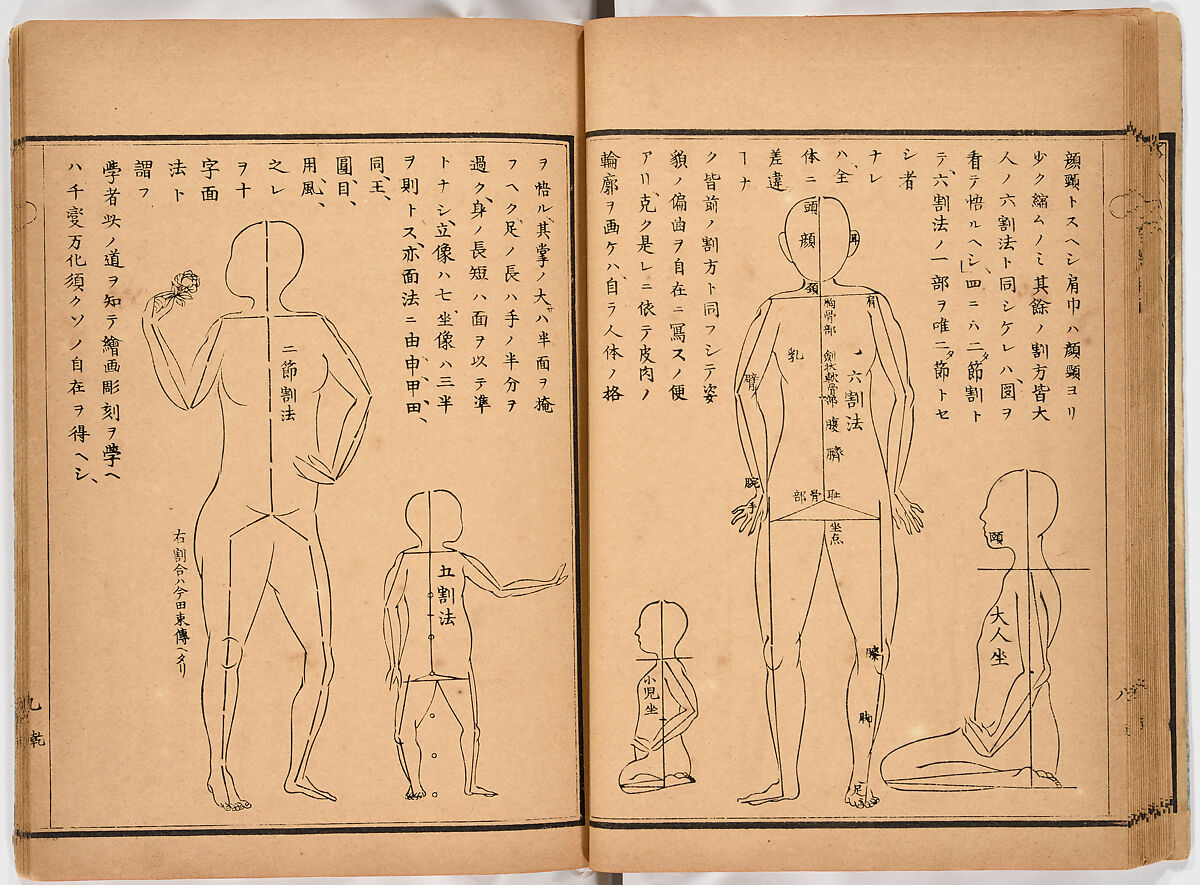 顔頸トスヘシ肩巾ハ顔頸ヨリ
少ク縮ムノミ其餘ノ割方皆大
人ノ六割法ト同シケレハ圖ヲ
看テ悟ルヘシ」四ニハ二タ節割ト
テ、六割法ノ一部ヲ唯二タ節トセ
シ者
ナレ
ハ、全
体ニ
差違
ナ
ク皆前ノ割方ト同フシテ姿
貌ノ偏曲ヲ自在ニ寫スノ便
アリ、克ク是レニ依テ皮肉ノ
輪廓ヲ画ケハ、自ラ人体ノ格
頭
顔
耳
頚
肩
胸骨部
乳
劍状軟骨部
六割法
臂
腹
臍
腕
手
恥骨部
坐点
膝
脚
足
頤
大人坐
小児坐
ヲ悟ル、其掌ノ大サハ半面ヲ掩
フヘク、足ノ長ハ手ノ半分ヲ
過ク、身ノ長短ハ面ヲ以テ準
トナシ、立像ハ七、坐像ハ三半
ヲ則トス、亦面法ニ由、申、甲、田、
同、王、
圓、目、
用、風、
之レ
ヲ十
字面
法ト
謂フ
學者此ノ道ヲ知テ繪画彫刻ヲ學ヘ
ハ千變万化須クソノ自在ヲ得ヘシ、
二節割法
五割法
右割合ハ今田東傳ヘタリ
九
乾